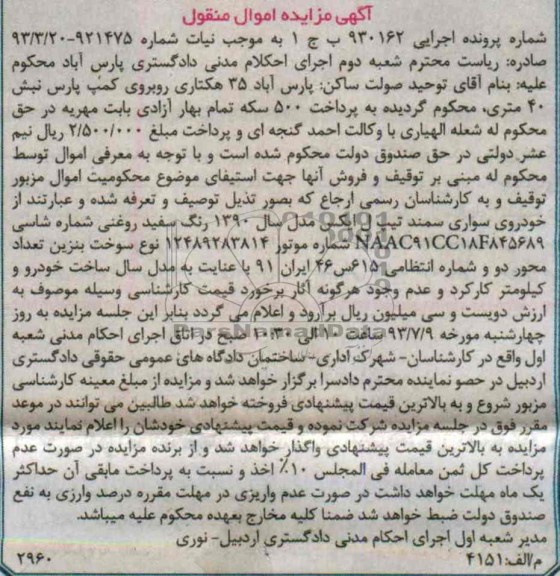 آگهی مزایده اموال منقول
شماره پرونده اجرایی ۹۳۰۱۶۲ ب ج ۱ به موجب نیات شماره ۹۲۱۴۷۵-۹۳/۳/۲۰
صادره: ریاست محترم شعبه دوم اجرای احکلام مدنی دادگستری پارس آباد محکوم
علیه: بنام آقای توحید صولت ساکن: پارس آباد ۳۵ هکتاری روبروی کمپ پارس نبش
۴۰ متری، محکوم گردیده به پرداخت ۵۰۰ سکه تمام بهار آزادی بابت مهریه در حق
محکوم له شعله الهیاری با وکالت احمد گنجه ای و پرداخت مبلغ ۲/۵۰۰/۰۰۰ ریال نیم
عشر دولتی در حق صندوق دولت محکوم شده است و با توجه به معرفی اموال توسط
محکوم له مبنی بر توقیف و فروش آنها جهت استیفای موضوع محکومیت اموال مزبور
توقیف و به کارشناسان رسمی ارجاع که بصور تذیل توصیف و تعرفه شده و عبارتند از
خودروی سواری سمند تیپ مدل سال ۱۳۹۰ رنگ سفید روغنی شماره شاسی
NAAC۹۱CC۱۸F۸۴۵۶۸۹ شماره موتور ۱۲۴۸۹۲۸۳۸۱۴ نوع سوخت بنزین تعداد
محور دو و شماره انتظامی ۶۱۵س۴۶ ایران ۹۱ با عنایت به مدل سال ساخت خودرو و
کیلومتر کارکرد و عدم وجود هرگونه آثار برخورد قیمت کارشناسی وسیله موصوف به
ارزش دویست و سی میلیون ریال برآورد و اعلام می گردد بنابر این جلسه مزایده به روز
چهارشنبه مورخه ۹۳/۷/۹ ساعت ۱۰ الی ۱۰:۳۰ صبح در اتاق اجرای احکام مدنی شعبه
اول واقع در کارشناسان- شهرک اداری- ساختمان دادگاه های عمومی حقوقی دادگستری
اردبیل در حصو نماینده محترم دادسرا برگزار خواهد شد و مزایده از مبلغ معینه کارشناسی
مزبور شروع و به بالاترین قیمت پیشنهادی فروخته خواهد شد طالبین می توانند در موعد
مقرر فوق در جلسه مزایده شرکت نموده و قیمت پیشنهادی خودشان را اعلام نمایند مورد
مزایده به بالاترین قیمت پیشنهادی واگذار خواهد شد و از برنده مزایده در صورت عدم
پرداخت کل ثمن معامله فی المجلس ۱۰٪ اخذ و نسبت به پرداخت مابقی آن حداکثر
یک ماه مهلت خواهد داشت در صورت عدم واریزی در مهلت مقرره درصد وارزی به نفع
صندوق دولت ضبط خواهد شد ضمنا کلیه مخارج بعهده محکوم علیه میباشد.
مدیر شعبه اول اجرای احکام مدنی دادگستری اردبیل- نوری
م/الف: ۴۱۵۱ ۲۹۶۰
ParsNamadData